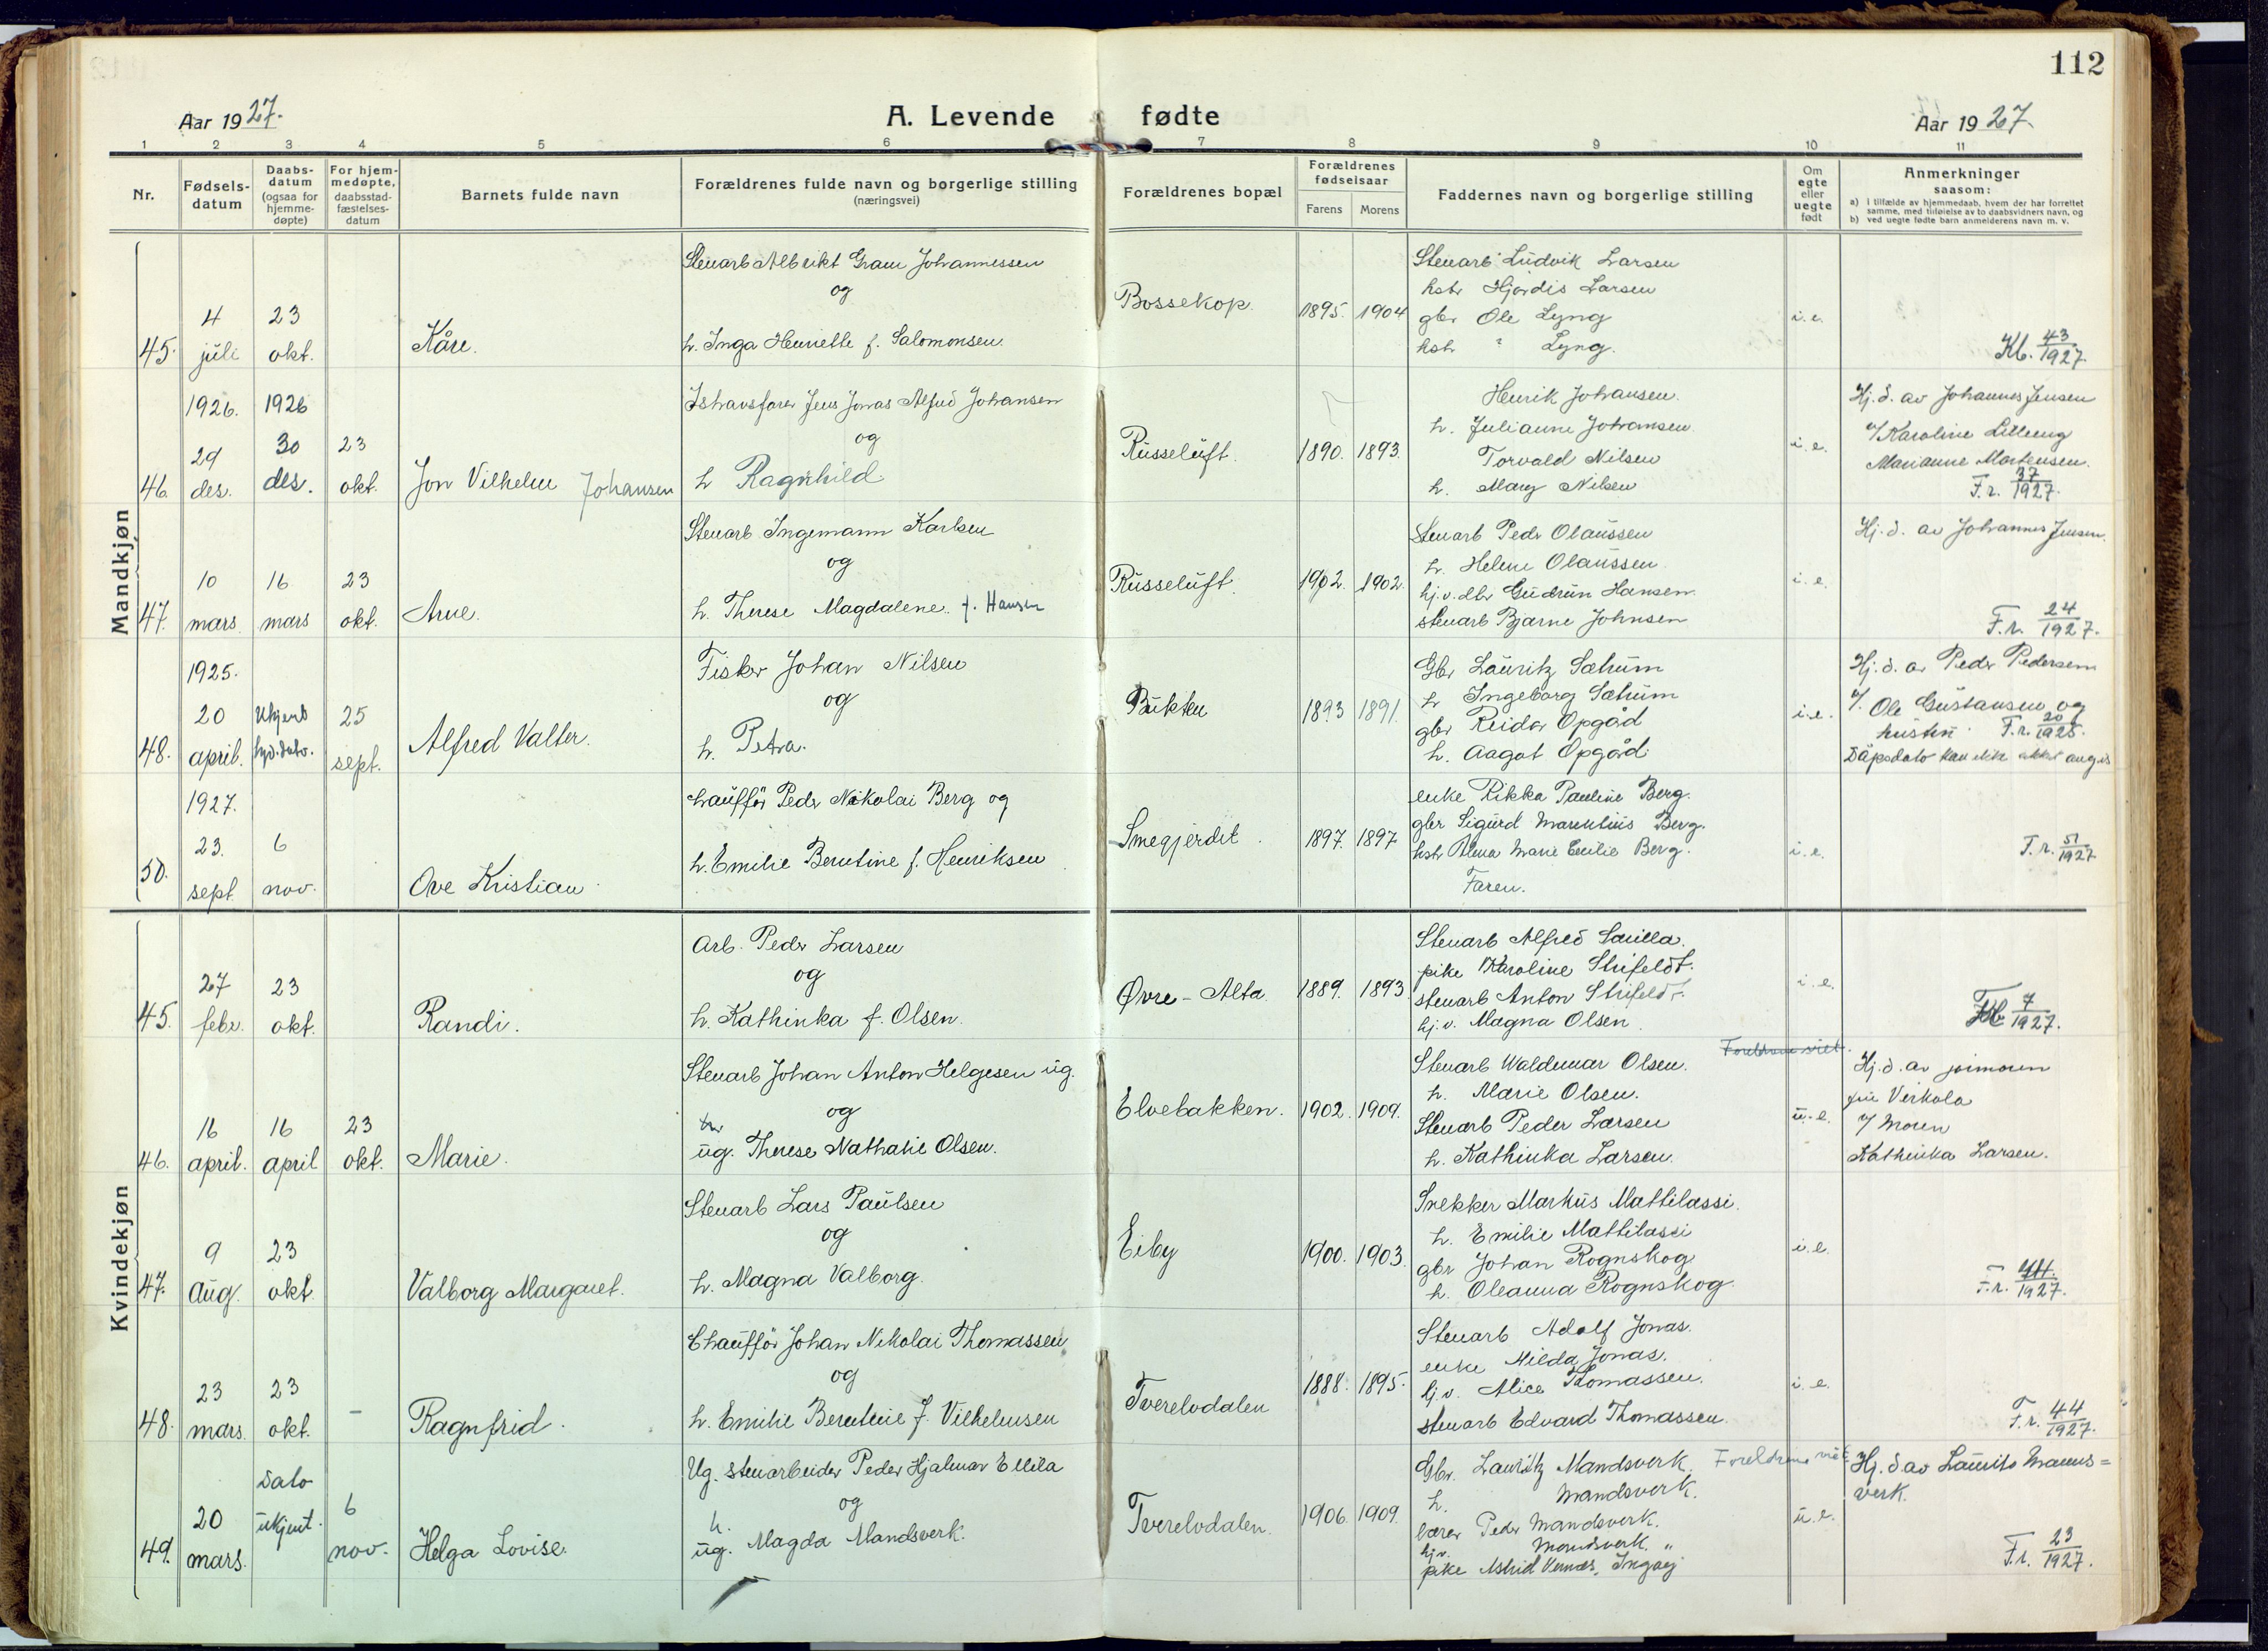 112
Aar 1927.
A. Levende fødte
Aar 1927.
1 2 3 4 5 6 7 8 9 10 11
Nr.
Fødsels-
datum
Daabs-
datum
(ogsaa for
hjemme-
døpte)
For hjem-
medøpte,
daabsstad-
fæstelses-
datum
Barnets fulde navn
Forældrenes fulde navn og borgerlige stilling
(næringsvei)
Forældrenes bopæl
Forældrenes
fødselsaar
Farens Morens
Faddernes navn og borgerlige stilling
Om
egte
eller
uegte
født
Anmerkninger
saasom:
a) i tilfælde av hjemmedaab, hvem der har forrettet
samme, med tilføielse av to daabsvidners navn, og
b) ved uegte fødte barn anmelderens navn m. v.
Mandkjøn
45.
4
juli
23
okt.
Kåre.
Stenarb Albrikt Gram Johannessen
og
h. Inga Henriette f. Salomonsen.
Bossekop.
1895. 1904
Stenarb Ludvik Larsen
hstr Hjørdis Larsen
gbr Ole Lyng
hstr " Lyng.
i.e.
Kb. 43/1927.
46.
1926.
29
des.
1926
30
des.
23
okt.
Jon Vilhelm Johansen
Ishavsfarer Jens Jonas Alfred Johansen
og
h Ragnhild
Russeluft.
1890. 1893.
Henrik Johansen.
h. Julianne Johansen.
Torvald Nilsen
h. Mary Nilsen
i.e.
Hj. d. av Johannes Jensen
v/ Karoline Lilleeng
Marianne Mortensen.
F.r. 37/1927.
47.
10
mars
16
mars
23
okt.
Arne.
Stenarb Ingemann Karlsen
og
h. Therese Magdalene. f. Hansen
Russeluft.
1902. 1902.
Stenarb Peder Olaussen
h. Helene Olaussen
hj.v. dtr Gudrun Hansen.
stenarb Bjarne Johnsen
i.e.
Hj. d. av Johannes Jensen.
F.r. 24/1927.
48.
1925.
20
april.
Ukjent
25
sept.
Alfred Valter.
Fisker Johan Nilsen
og
h. Petra.
Bukken
1893 1891.
Gbr Lauritz Sætrum
h Ingeborg Sætrum
gbr Reidar Opgård
h. Aagot Opgård.
i.e.
Hj. d. av Peder Pedersen
v/ Ole Gustavsen og
hustru F.r. 20/1925.
Dåpsdato kan ikke angis
50.
1927.
23.
sept.
6
nov.
Ove Kristian
Chauffør Peder Nikolai Berg og
h. Emilie Berntine f. Henriksen
Smegjerdet.
1897. 1897
enke Rikka Pauline Berg.
gbr Sigurd Marentius Berg.
hstr Alma Marie Emilie Berg.
Faren.
i.e.
F.r. 51/1927
Kvindekjøn
45.
27
febr.
23
okt.
Randi.
Arb. Peder Larsen
og
h. Kathinka f. Olsen.
Øvre-Alta.
1889. 1893.
Stenarb Alfred Suilla.
pike Karoline Strifeldt.
stenarb Anton Strifeldt.
hj.v. Magna Olsen.
i.e.
7/1927.
46.
16
april.
16
april
23
okt.
Marie.
Stenarb Johan Anton Helgesen ug.
og
ug. Therese Nathalie Olsen.
Elvebakken.
1902. 1909.
Foreldrene viet.
Stenarb Waldemar Olsen.
h. Marie Olsen.
Stenarb Peder Larsen
h. Kathinka Larsen.
u.e.
Hj. d. av jormoren
fru Virkola
v/ moren
Kathinka Larsen.
47.
9
Aug.
23
okt
Valborg Margaret.
Stenarb Lars Paulsen
og
h. Magna Valborg.
Eiby
1900. 1903.
Snekker Markus Mattilassi.
h. Emilie Mattilassi
gbr Johan Rognskog
h. Oleanna Rognskog.
i.e.
F.r. 44./1927.
48.
23
mars.
23
okt.
-
Ragnfrid.
Chauffør Johan Nikolai Thomassen
og
h. Emilie Berntine f. Vilhelmsen
Tverelvdalen
1888. 1895.
Stenarb Adolf Jonas.
enke Hilda Jonas.
hj.v. Alice Thomassen.
stenarb Edvard Thomassen.
i.e.
F.r. 44/1927.
49.
20
mars.
Dato
ukjent.
6
nov.
Helga Lovise.
Ug. stenarbeider Peder Hjalmar Ellila
og
h.
ug. Magda Mandsverk.
Tverelvdalen.
1906. 1909.
Gbr. Lauritz Mandsverk. Foreldrene viet
h. Mandsverk.
Peder Mandsverk.
hj.v. Mandsverk. "
pike Astrid
u.e.
Hj. d av Laurits Manns=
verk.
F.r. 23/1927.